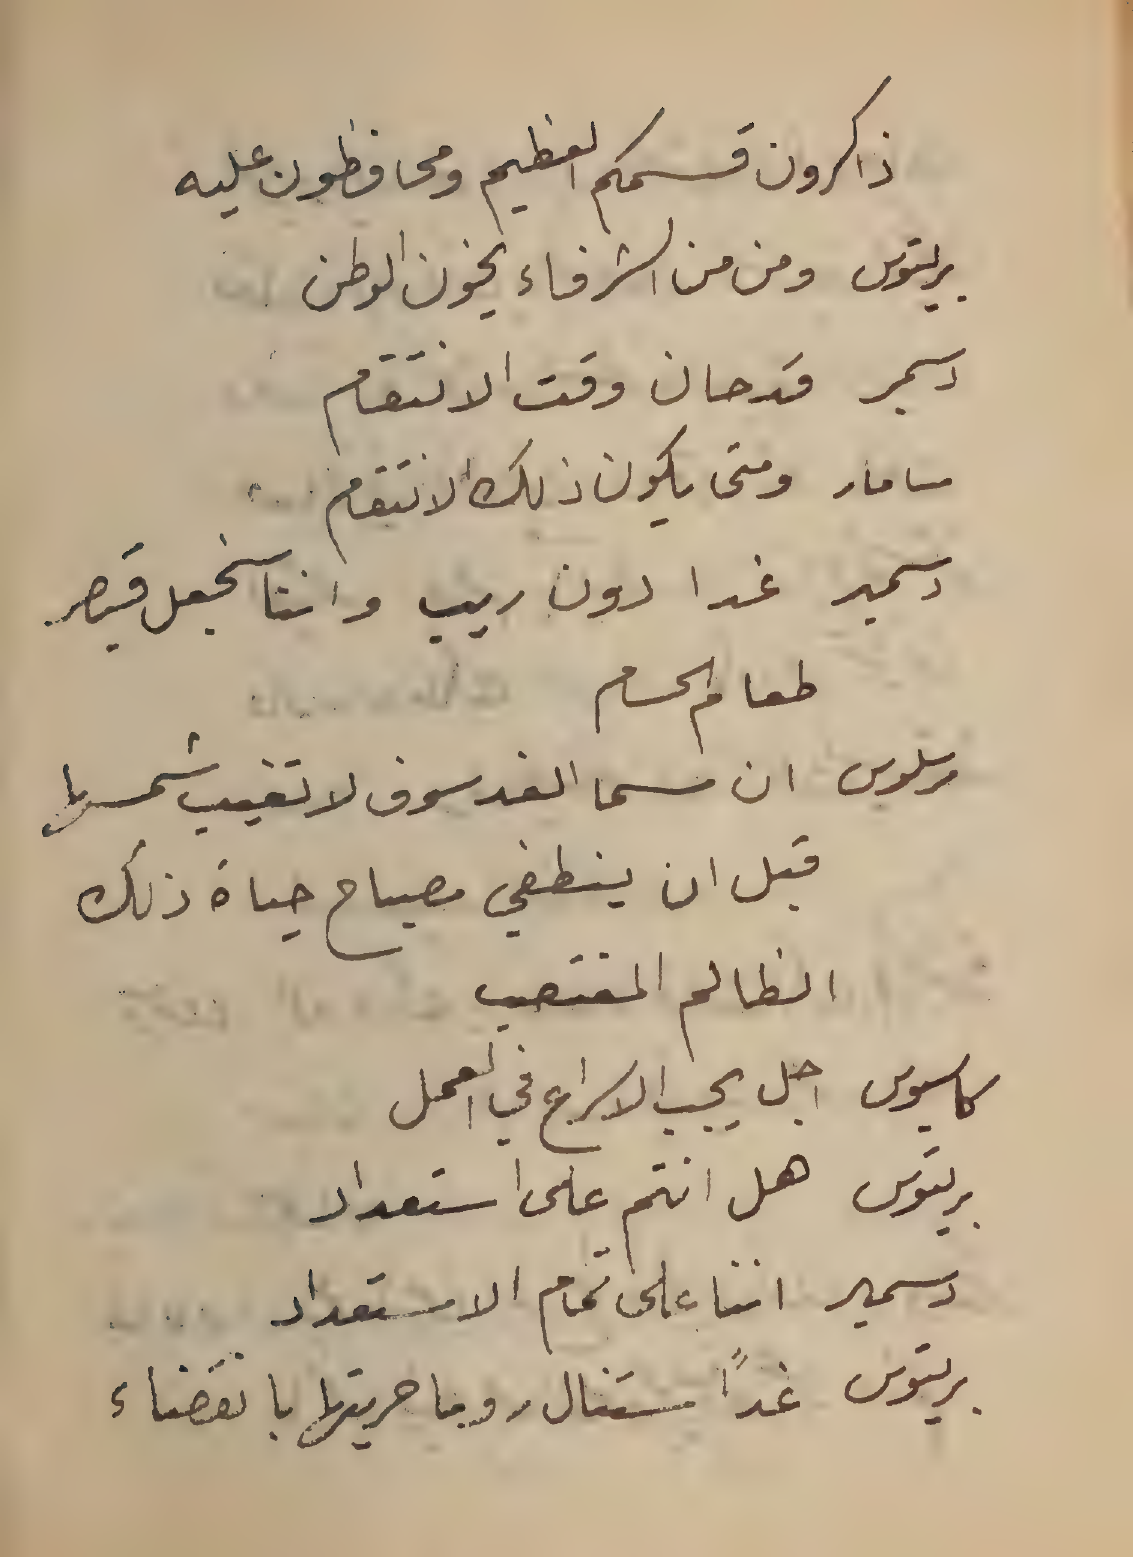 ذاكرون قسمكم العظيم ومحافظون عليه
بريتوس ومن من الشرفاء يخون الوطن
دسمبر قد حان وقت الانتقام
سامار ومتى يكون ذلك الانتقام
دسمبر غدا دون ريب واننا سنجعل قيصر
طعام الحسام
مرسلوس ان سما الغد سوف لا تغيب شمسها
قبل ان ينطفي مصباح حياة ذلك
الظالم المغتصب
كاسيوس اجل يجب الاسراع في العمل
بريتوس هل انتم على استعداد
دسمبر اننا على تمام الاستعداد
بريتوس غداً ستنال روما حريتها بانقضاء